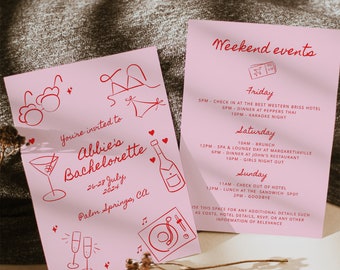 you're invited to
Abbie's
Bachelorette
26-29 July
2024
Palm Springs, CA
Weekend events
Friday
5PM - CHECK IN AT THE BEST WESTERN BRISS HOTEL
8PM - DINNER AT PEPPERS THAI
10PM - KARAOKE GAMES
Saturday
10AM - BRUNCH
12PM - SPA & LOUNGE DAY AT MARGARITAVILLE
6PM - DINNER AT JOHN'S RESTAURANT
10PM - GIRLS NIGHT OUT
Sunday
11AM - CHECK OUT OF HOTEL
12PM - LUNCH AT THE SANDWICH SPOT
2PM - GOODBYE
USE THIS SPACE FOR ANY ADDITIONAL DETAILS SUCH
AS COSTS, HOTEL DETAILS, RSVP, OR ANY OTHER
INFORMATION OF RELEVANCE